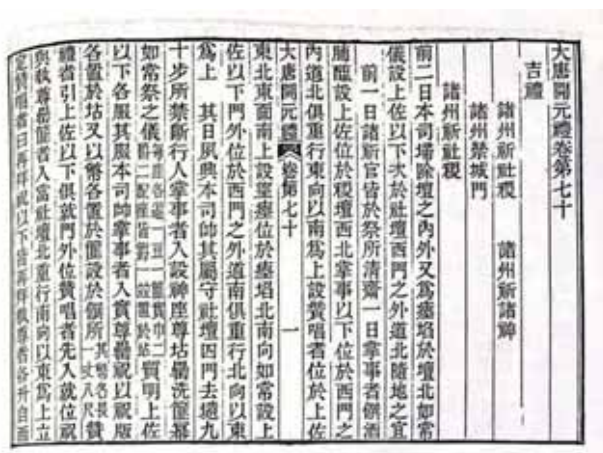 大唐開元禮卷第七十
吉禮
諸州祈社稷 諸州祈諸神
諸州禁城門
諸州祈社稷
前二日本司埽除壇之內外又為瘞埳於壇北如常
儀設上佐以下次於社壇西門之外道北隨地之宜
前一日諸祈官皆於祭所清齋一日掌事者饌酒
脯醢設上佐位於稷壇西北掌事以下位於西門之
內道北俱重行東向以南為上設贊唱者位於上佐
大唐開元禮 卷第七十 一
東北東面南上設望瘞位於瘞埳北南向如常設上
佐以下門外位於西門之外道南俱重行北向以東
為上 其日夙興本司帥其屬守社壇四門去壇九
十步所禁斷行人掌事者入設神座尊坫罍洗篚冪
如常祭之儀 質明上佐
以下各服其服本司帥掌事者入實尊罍祝以祝版
各置於坫又以幣各置於篚設於饌所其幣各長一丈八尺贊
禮者引上佐以下俱就門外位贊唱者先入就位祝
與執尊罍篚者入當社壇北重行南向以東為上立
定贊唱者曰再拜祝以下皆再拜執尊者各升自西